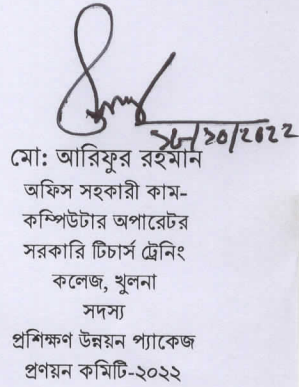 ১৮/১০/২০২২
মো: আরিফুর রহমান
অফিস সহকারী কাম-
কম্পিউটার অপারেটর
সরকারি টিচার্স ট্রেনিং
কলেজ, খুলনা
সদস্য
প্রশিক্ষণ উন্নয়ন প্যাকেজ
প্রণয়ন কমিটি-২০২২